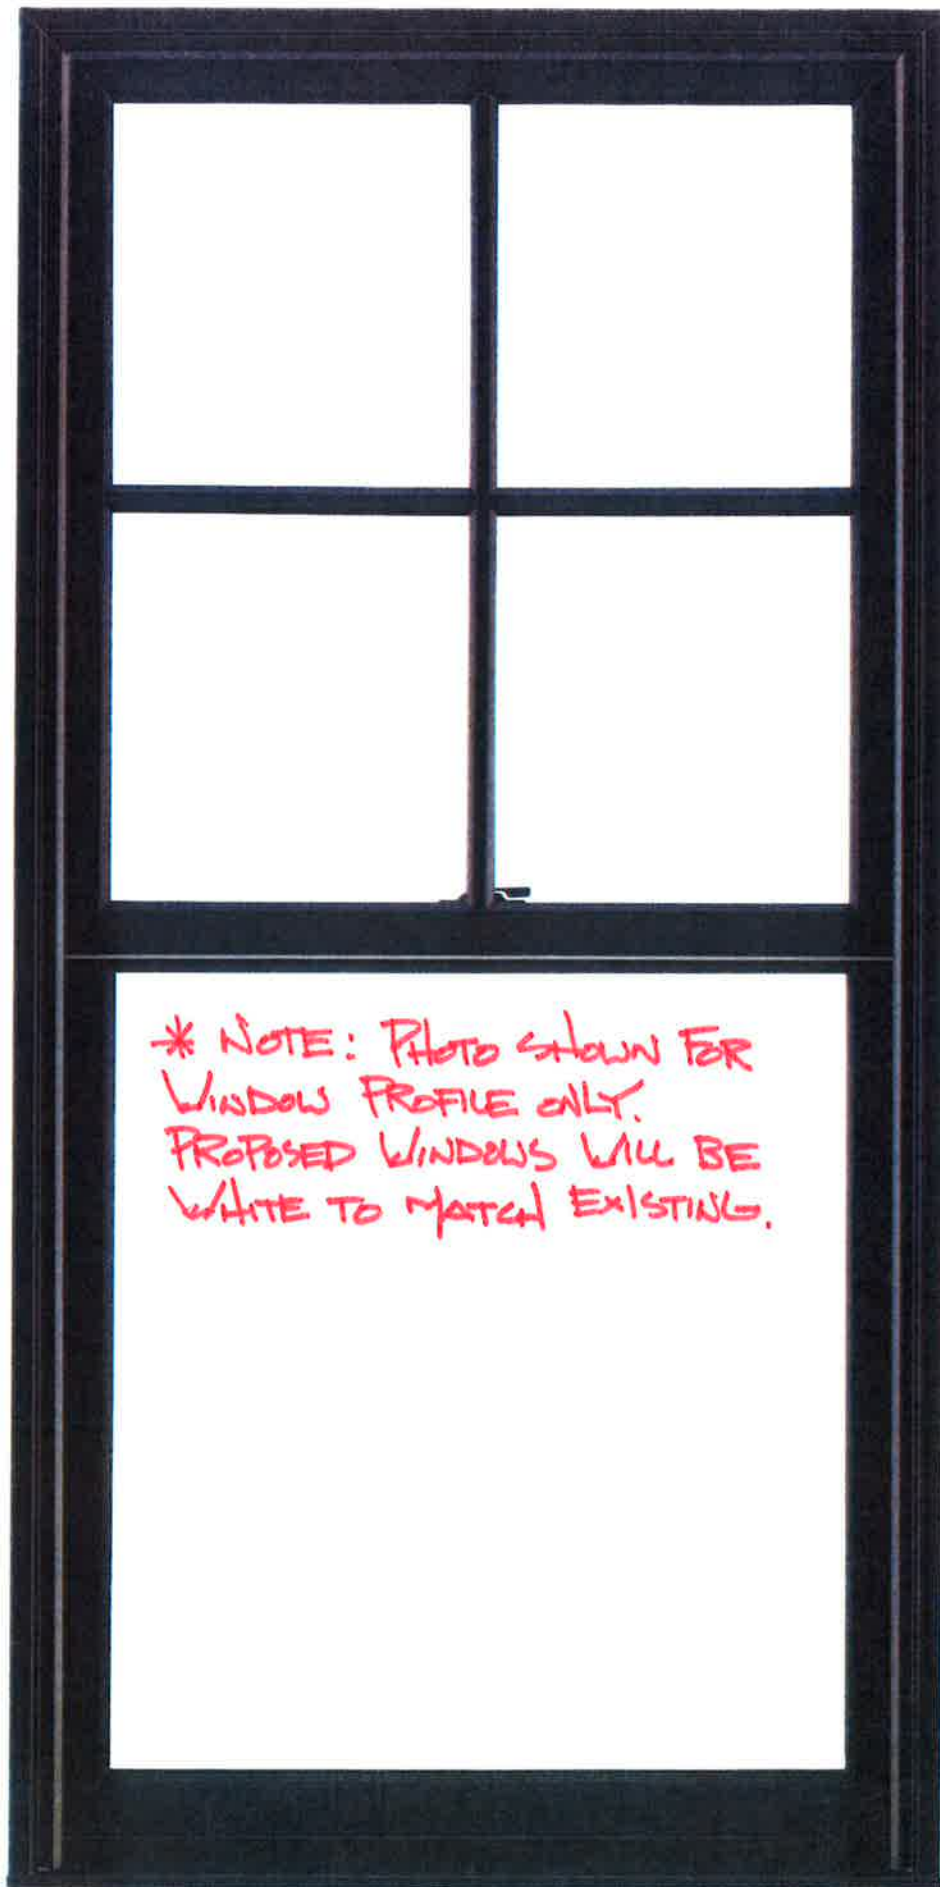 * NOTE: PHOTO SHOWN FOR
WINDOW PROFILE ONLY.
PROPOSED WINDOWS WILL BE
WHITE TO MATCH EXISTING.